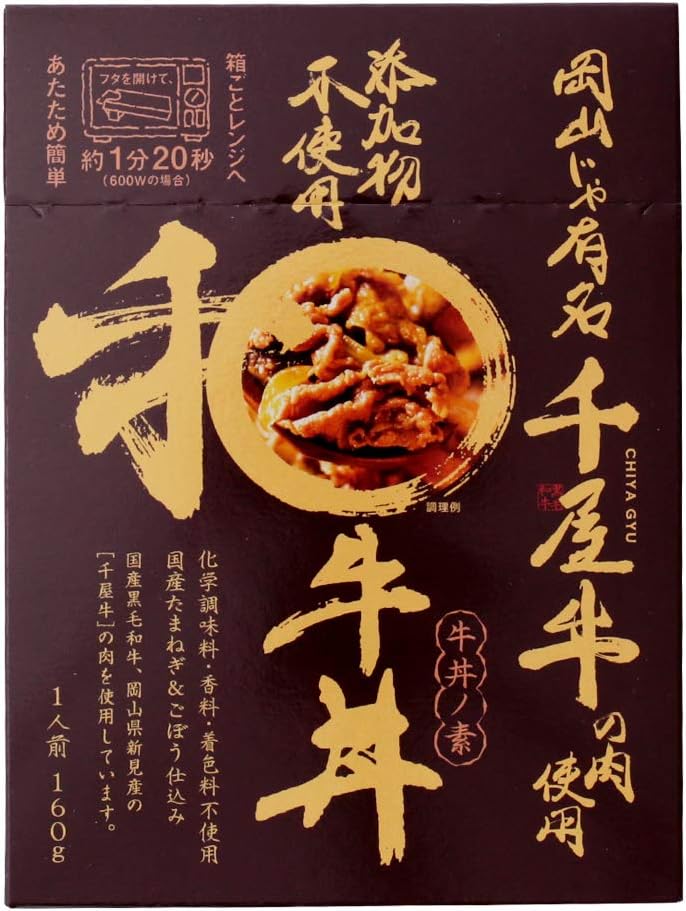 岡山じゃ有名
千屋牛の肉使用
CHIYA GYU
黒毛
和牛
添加物
不使用
箱ごとレンジへ
フタを開けて、
約1分20秒
(600Wの場合)
あたため簡単
和牛丼
調理例
牛丼ノ素
化学調味料・香料・着色料不使用
国産たまねぎ&ごぼう仕込み
国産黒毛和牛、岡山県新見産の
[千屋牛]の肉を使用しています。
1人前 160g